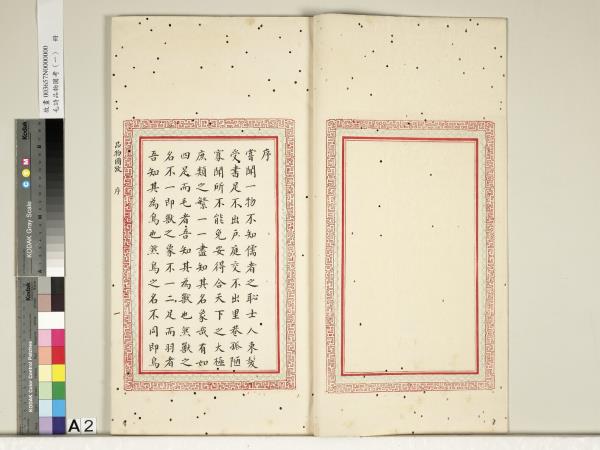 序
嘗聞一物不知儒者之恥士人束髮
受書足不出戶庭交不出里巷孤陋
寡聞所不能免安得合天下之大極
庶類之繁一一盡知其名象哉有如
四足而毛者吾知其為獸也然獸之
名不一即獸之象不一二足而羽者
吾知其為鳥也然鳥之名不同即鳥
品物圖攷 序
一
故畫003657N0000000
毛詩品物圖考(一) 冊
Kodak
C Y M
KODAK Gray Scale
Kodak
KODAK Color Control Patches
A 2